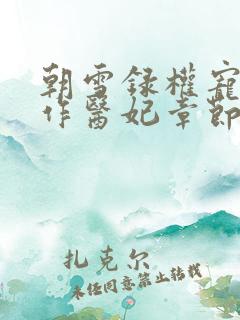 朝雪録權寵
作醫妃章節
扎克尔
未经同意禁止转载